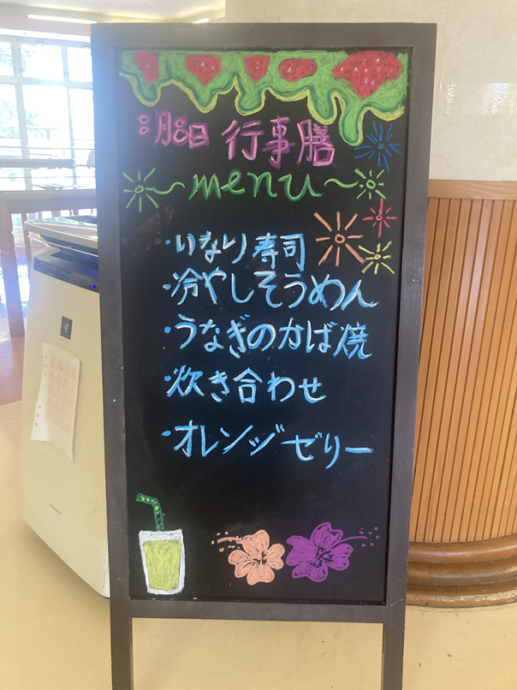 8月8日 行事膳
～menu～
・いなり寿司
・冷やしそうめん
・うなぎのかば焼
・炊き合わせ
・オレンジゼリー